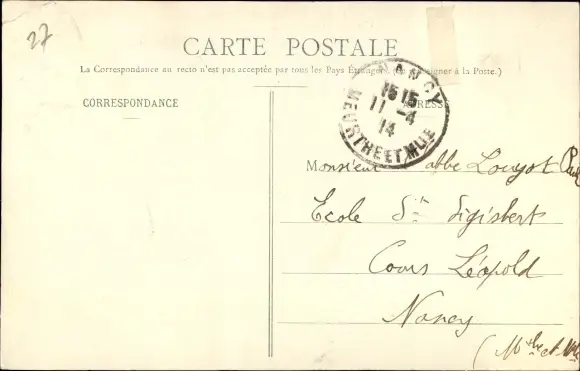 27
CARTE POSTALE
La Correspondance au recto n'est pas acceptée par tous les Pays Étrangers (Se renseigner à la Poste.)
CORRESPONDANCE
NANCY
15 15
11 -4
14
MEURTHE ET MLLE
Monsieur abbé Louyot Paul
Ecole St Sigisbert
Cours Léopold
Nancy
(Mthe et Mlle